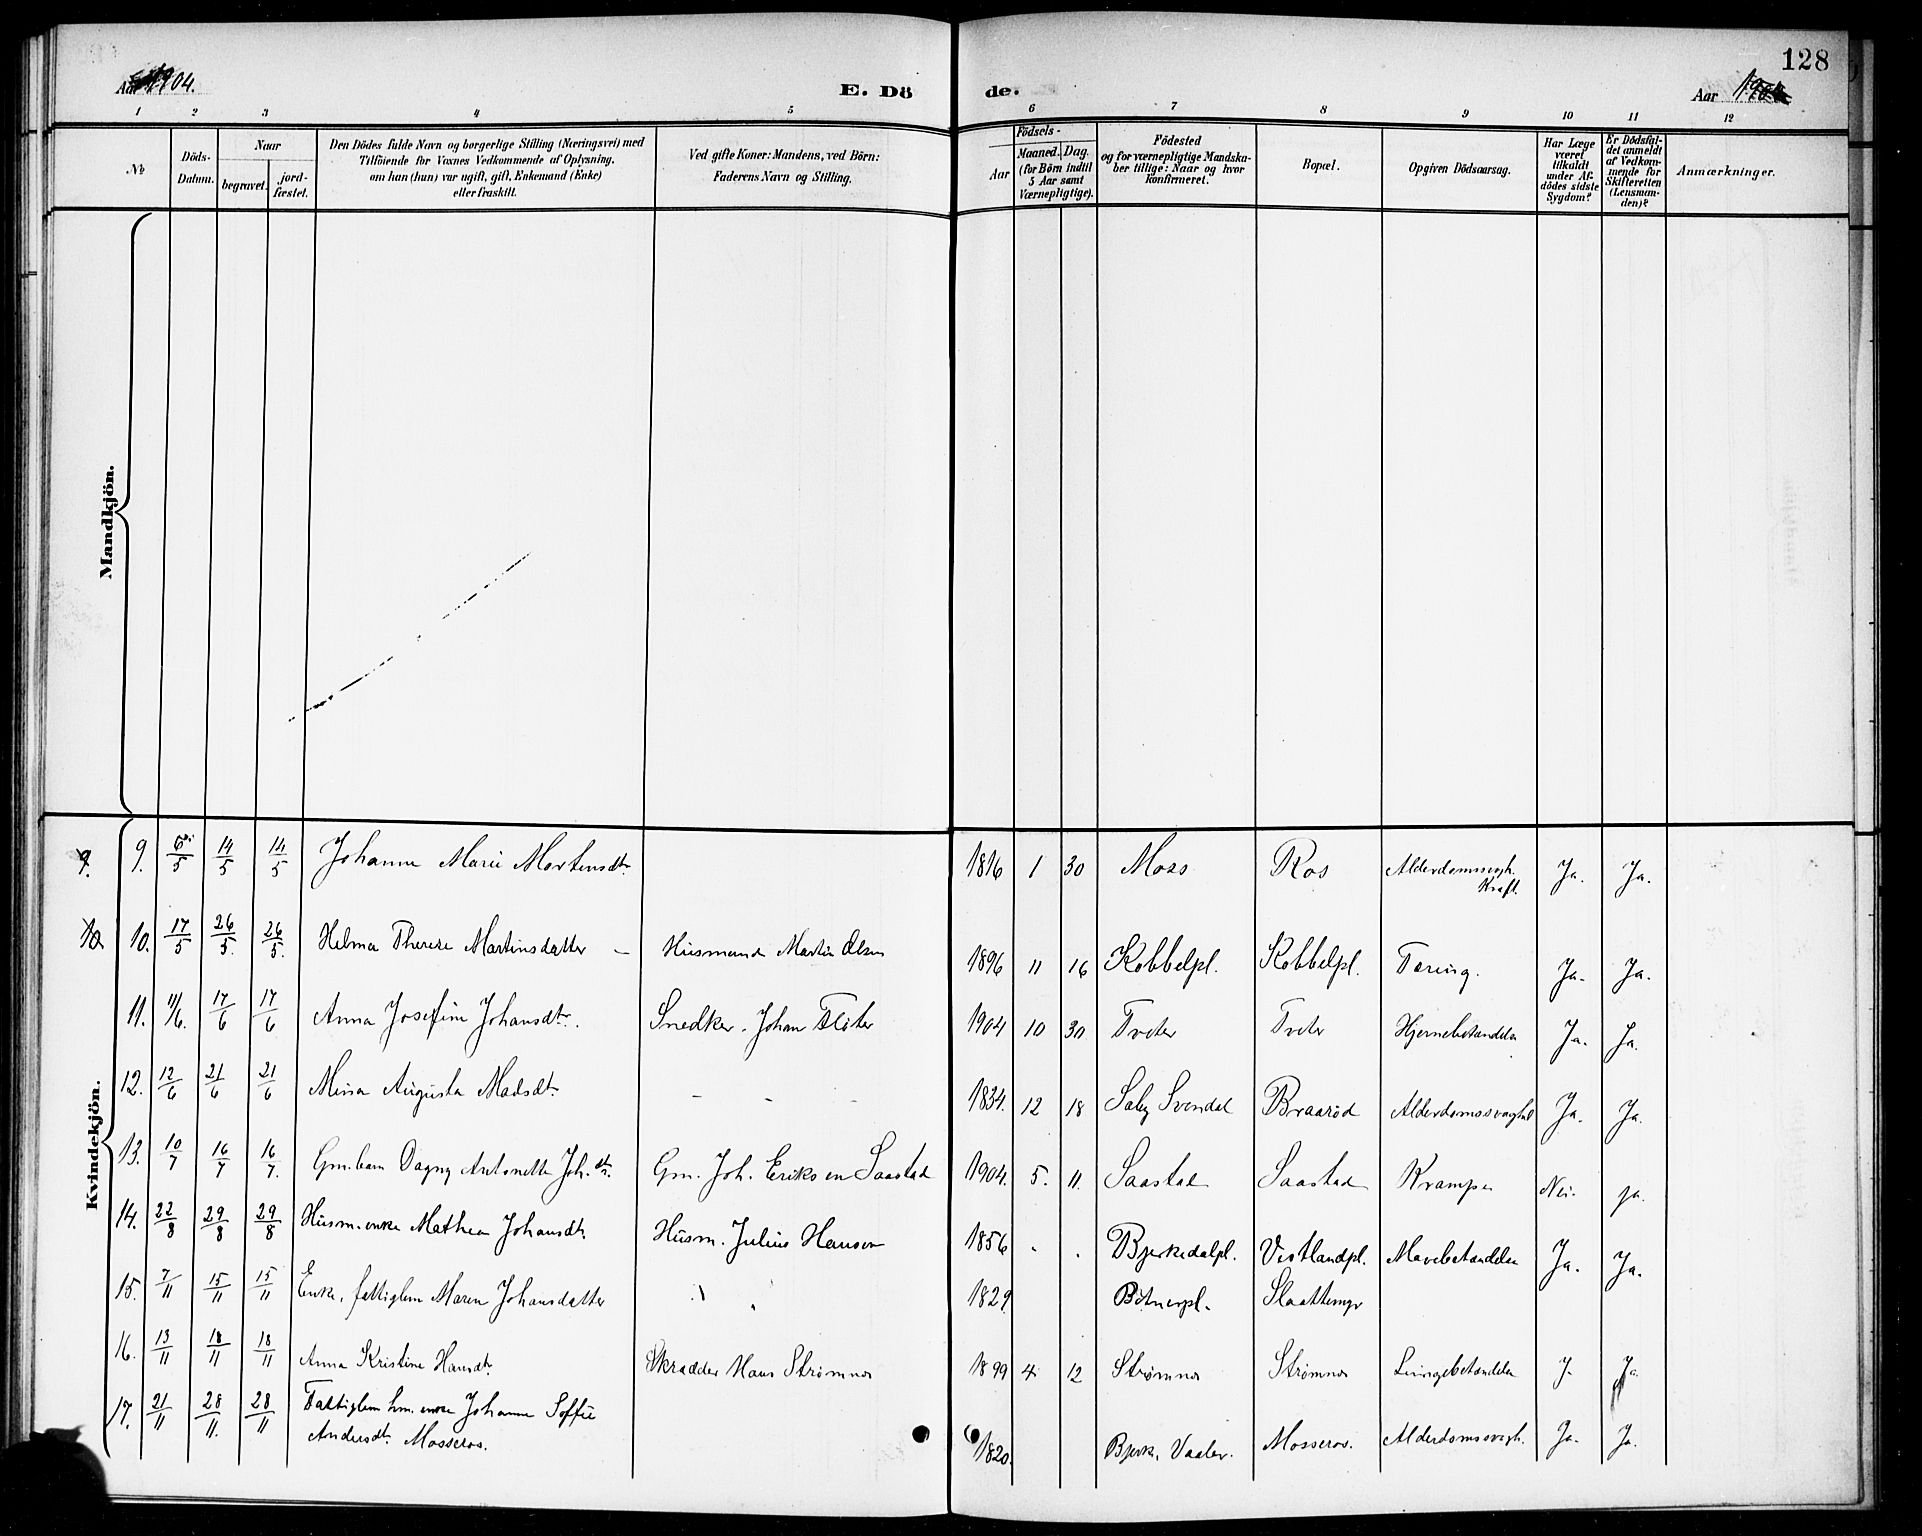 128
Aar 1904.
E. Dö de.
Aar
1 2 3 4 5 6 7 8 9 10 11 12
№
Döds-
Datum.
Naar
begravet.
jord-
fæstet.
Den Dödes fulde Navn og borgerlige Stilling (Næringsvei) med
Tilföiende for Voxnes Vedkommende af Oplysning,
om han (hun) var ugift, gift, Enkemand (Enke)
eller fraskilt.
Ved gifte Koner: Mandens, ved Börn:
Faderens Navn og Stilling.
Födsels-
Aar
Maaned. Dag.
(for Börn indtil
5 Aar samt
Værnepligtige).
Födested
og for værnepligtige Mandska-
ber tillige: Naar og hvor
konfirmeret.
Bopæl.
Opgiven Dödsaarsag.
Har Læge
været
tilkaldt
under Af-
dödes sidste
Sygdom?
Er Dödsfal-
det anmeldt
af Vedkom-
mende for
Skifteretten
(Lensman-
den)?
Anmærkninger.
Mandkjön.
Kvindekjön.
9. 9. 6/5 14/5 14/5 Johanne Marie Martinsdtr. 1816 1 30 Moss Ros Alderdomssvgh. Ja. Ja.
Kraft.
10 10. 17/5 26/5 26/5 Helma Therese Martinsdatter — Husmand Martin Olsen 1896 11 16 Kobbelpl. Kobbelpl. Tæring. Ja. Ja.
11. 11/6. 17/6 17/6 Anna Josefine Johansdtr. Snedker Johan 1904 10 30 Tveter Tveter Hjernebetændelse Ja. Ja.
12. 12/6 21/6 21/6 Mina Augusta Madsdtr. - - - 1834. 12 18 Saby Svendal Braarød Alderdomssvaghed Ja. Ja.
13. 10/7 16/7 16/7. Gm. barn Dagny Antonette Joh.dtr. Gm. Joh. Eriksen Saastad 1904. 5. 11. Saastad Saastad Krampe Nei. Ja.
14. 22/8 29/8 29/8 Husm. enke Mathea Johansdtr. Husm. Julius Hansen 1856 . . Bjerkedalpl. Vestlandpl. Mavebetændelse Ja. Ja.
15. 7/11 15/11 15/11 Enke, fattiglem Maren Johansdatter 1829 Slaattemyr
16. 13/11 18/11 18/11 Anna Kristine Hansdtr. Skrædder Hans Strømnes 1899 4 12 Strømnes Strømnes Lungebetændelse J. Ja.
17. 21/11 28/11. 28/11 Fattiglem hm. enke Johanne Soffie
Andersdtr. Mosseros. 1820. Bjerk, Vaaler. Mosseros. Alderdomssvagh. Ja. Ja.